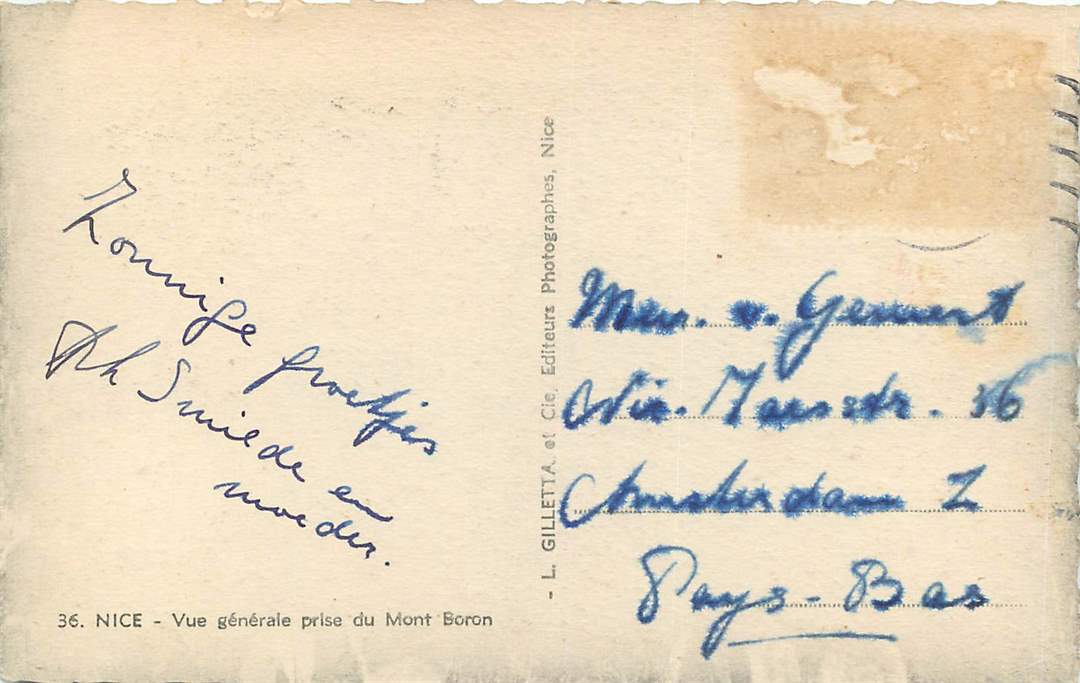 Zonnige groetjes
Smiede en
moeder.
36. NICE - Vue générale prise du Mont Boron
- L. GILLETTA et Cie, Editeurs Photographes, Nice
Mevr. v. Gemert
Maasstr. 36
Amsterdam Z
Pays-Bas